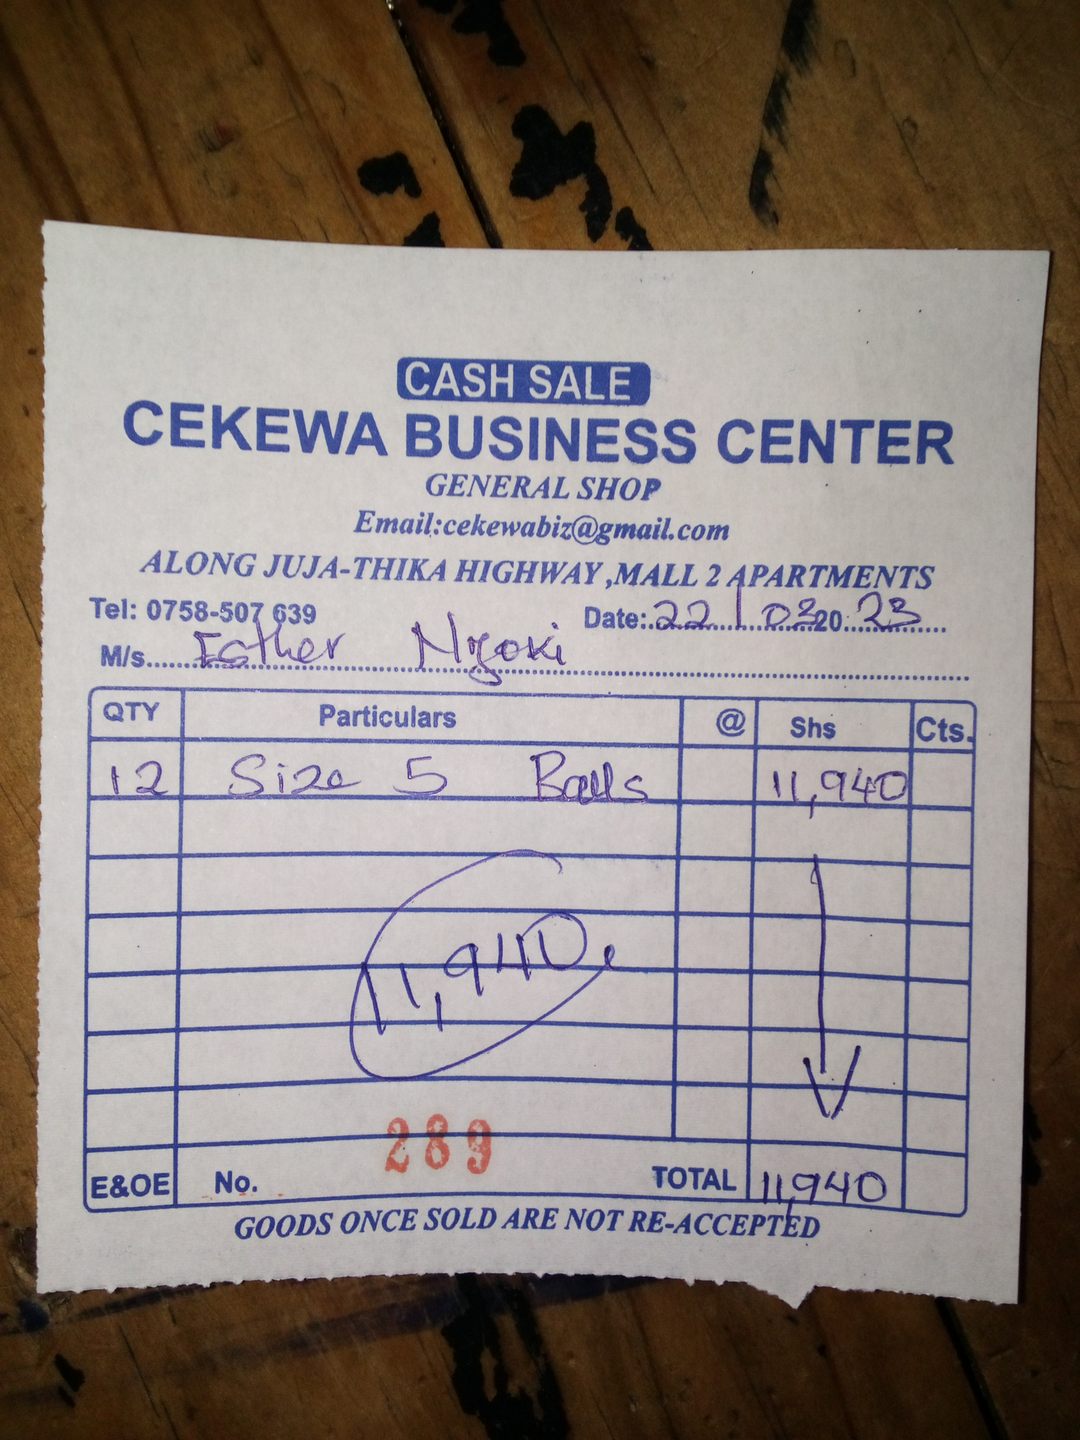 CASH SALE
CEKEWA BUSINESS CENTER
GENERAL SHOP
Email:cekewabiz@gmail.com
ALONG JUJA-THIKA HIGHWAY ,MALL 2 APARTMENTS
Tel: 0758-507 639 Date:.22/03 20 23
M/s. Esther Njoki
QTY Particulars @ Shs Cts.
12 Size 5 Balls 11,940
11,940
289
E&OE No. TOTAL 11,940
GOODS ONCE SOLD ARE NOT RE-ACCEPTED